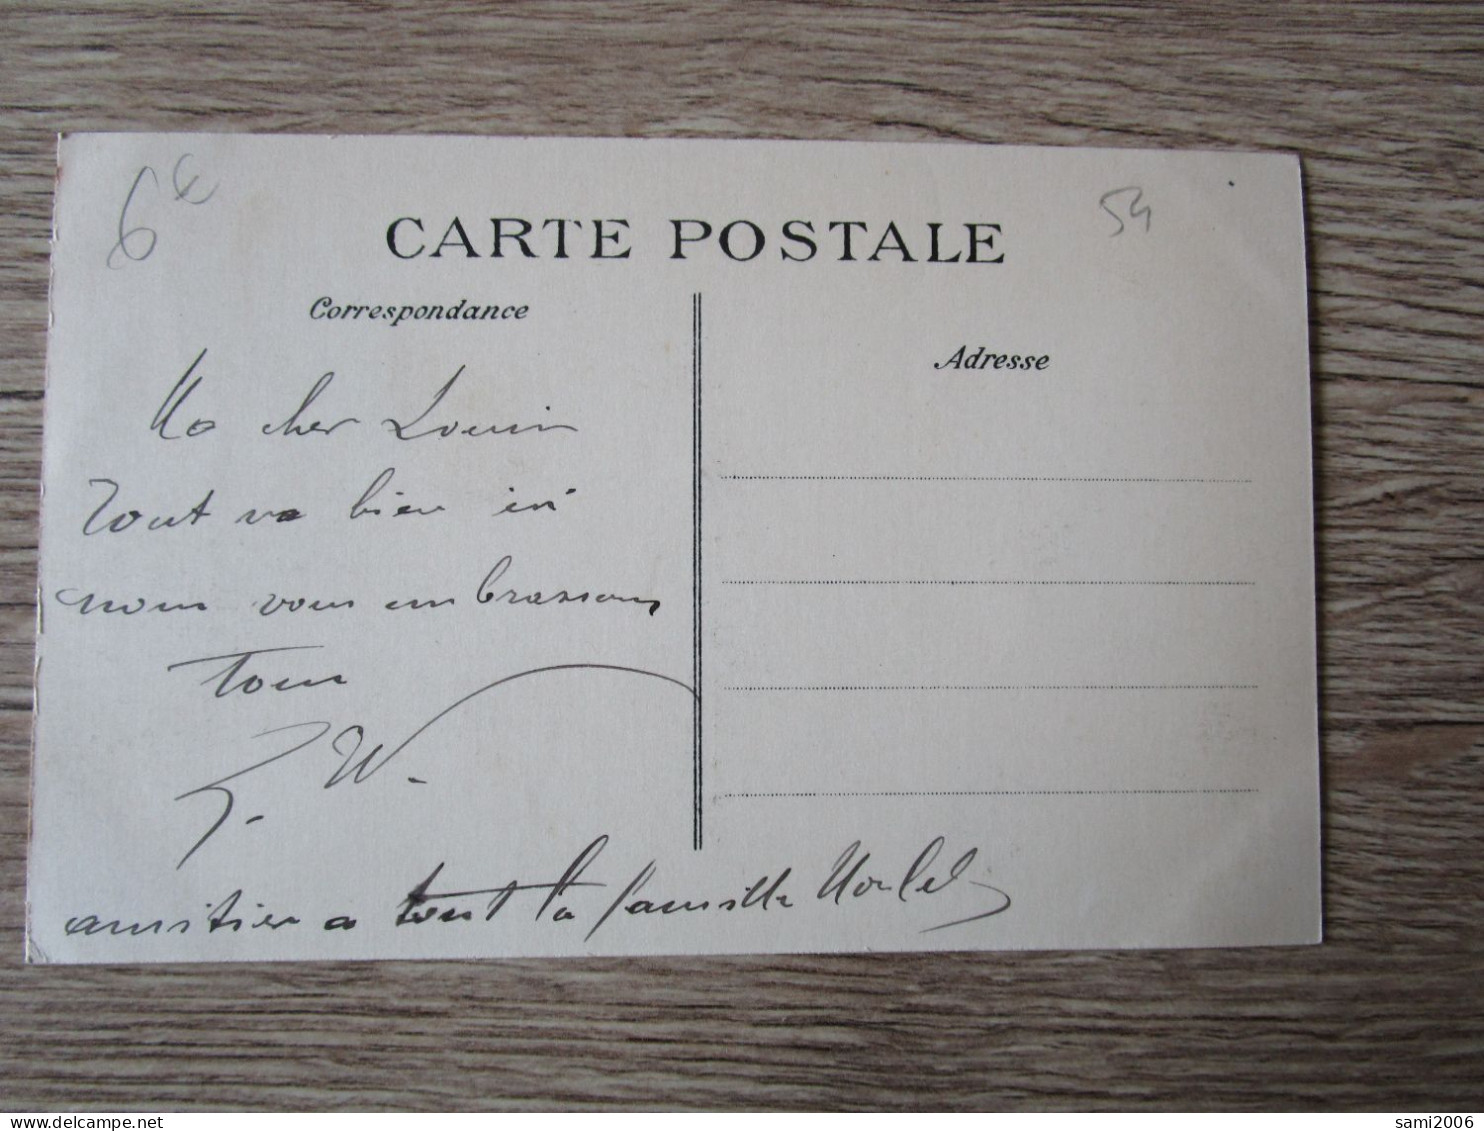 6€
54
CARTE POSTALE
Correspondance
Adresse
Mo cher Louis
Tout va bien ici
nous vous embrassons
tous
J. W.
amitier a tout la famille
delcampe.net
sami2006